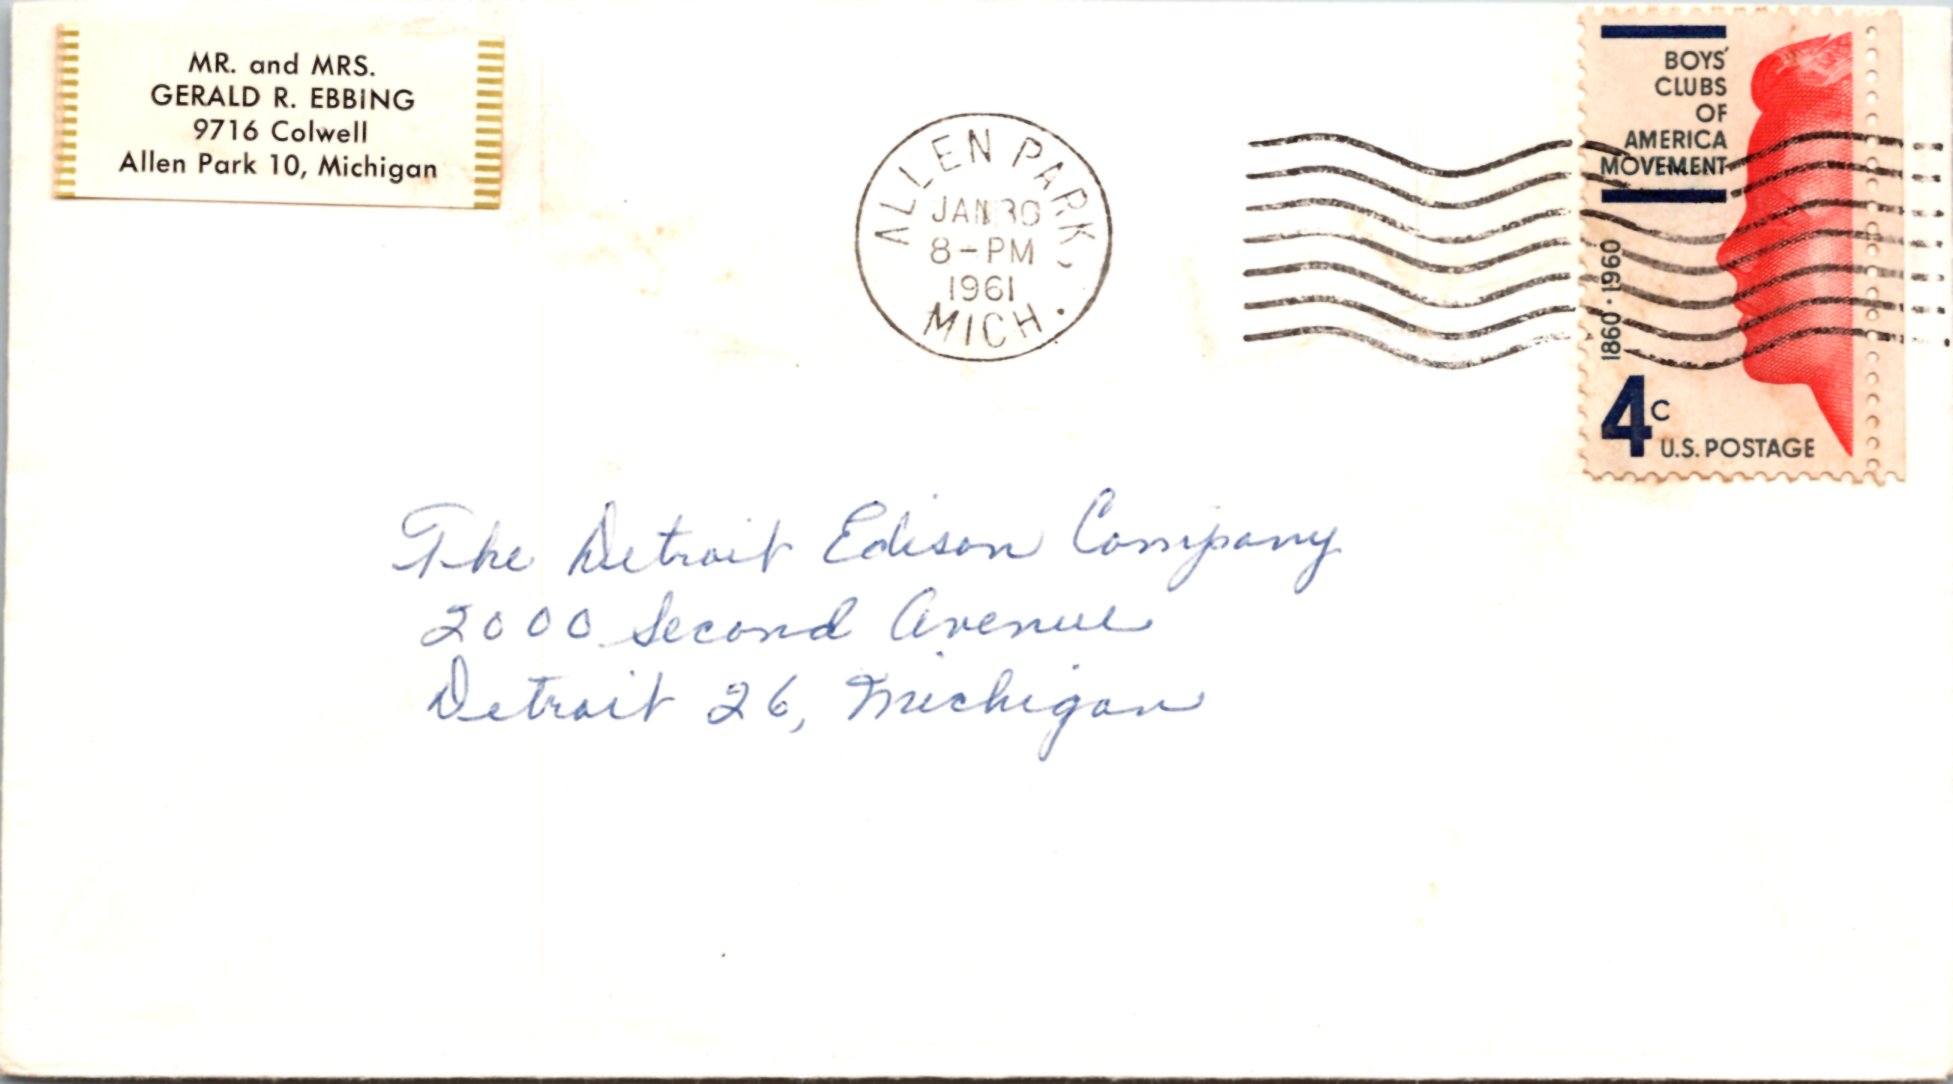 MR. and MRS.
GERALD R. EBBING
9716 Colwell
Allen Park 10, Michigan
ALLEN PARK,
JAN 30
8-PM
1961
MICH.
BOYS'
CLUBS
OF
AMERICA
MOVEMENT
1860·1960
4c
U.S. POSTAGE
The Detroit Edison Company
2000 Second Avenue
Detroit 26, Michigan